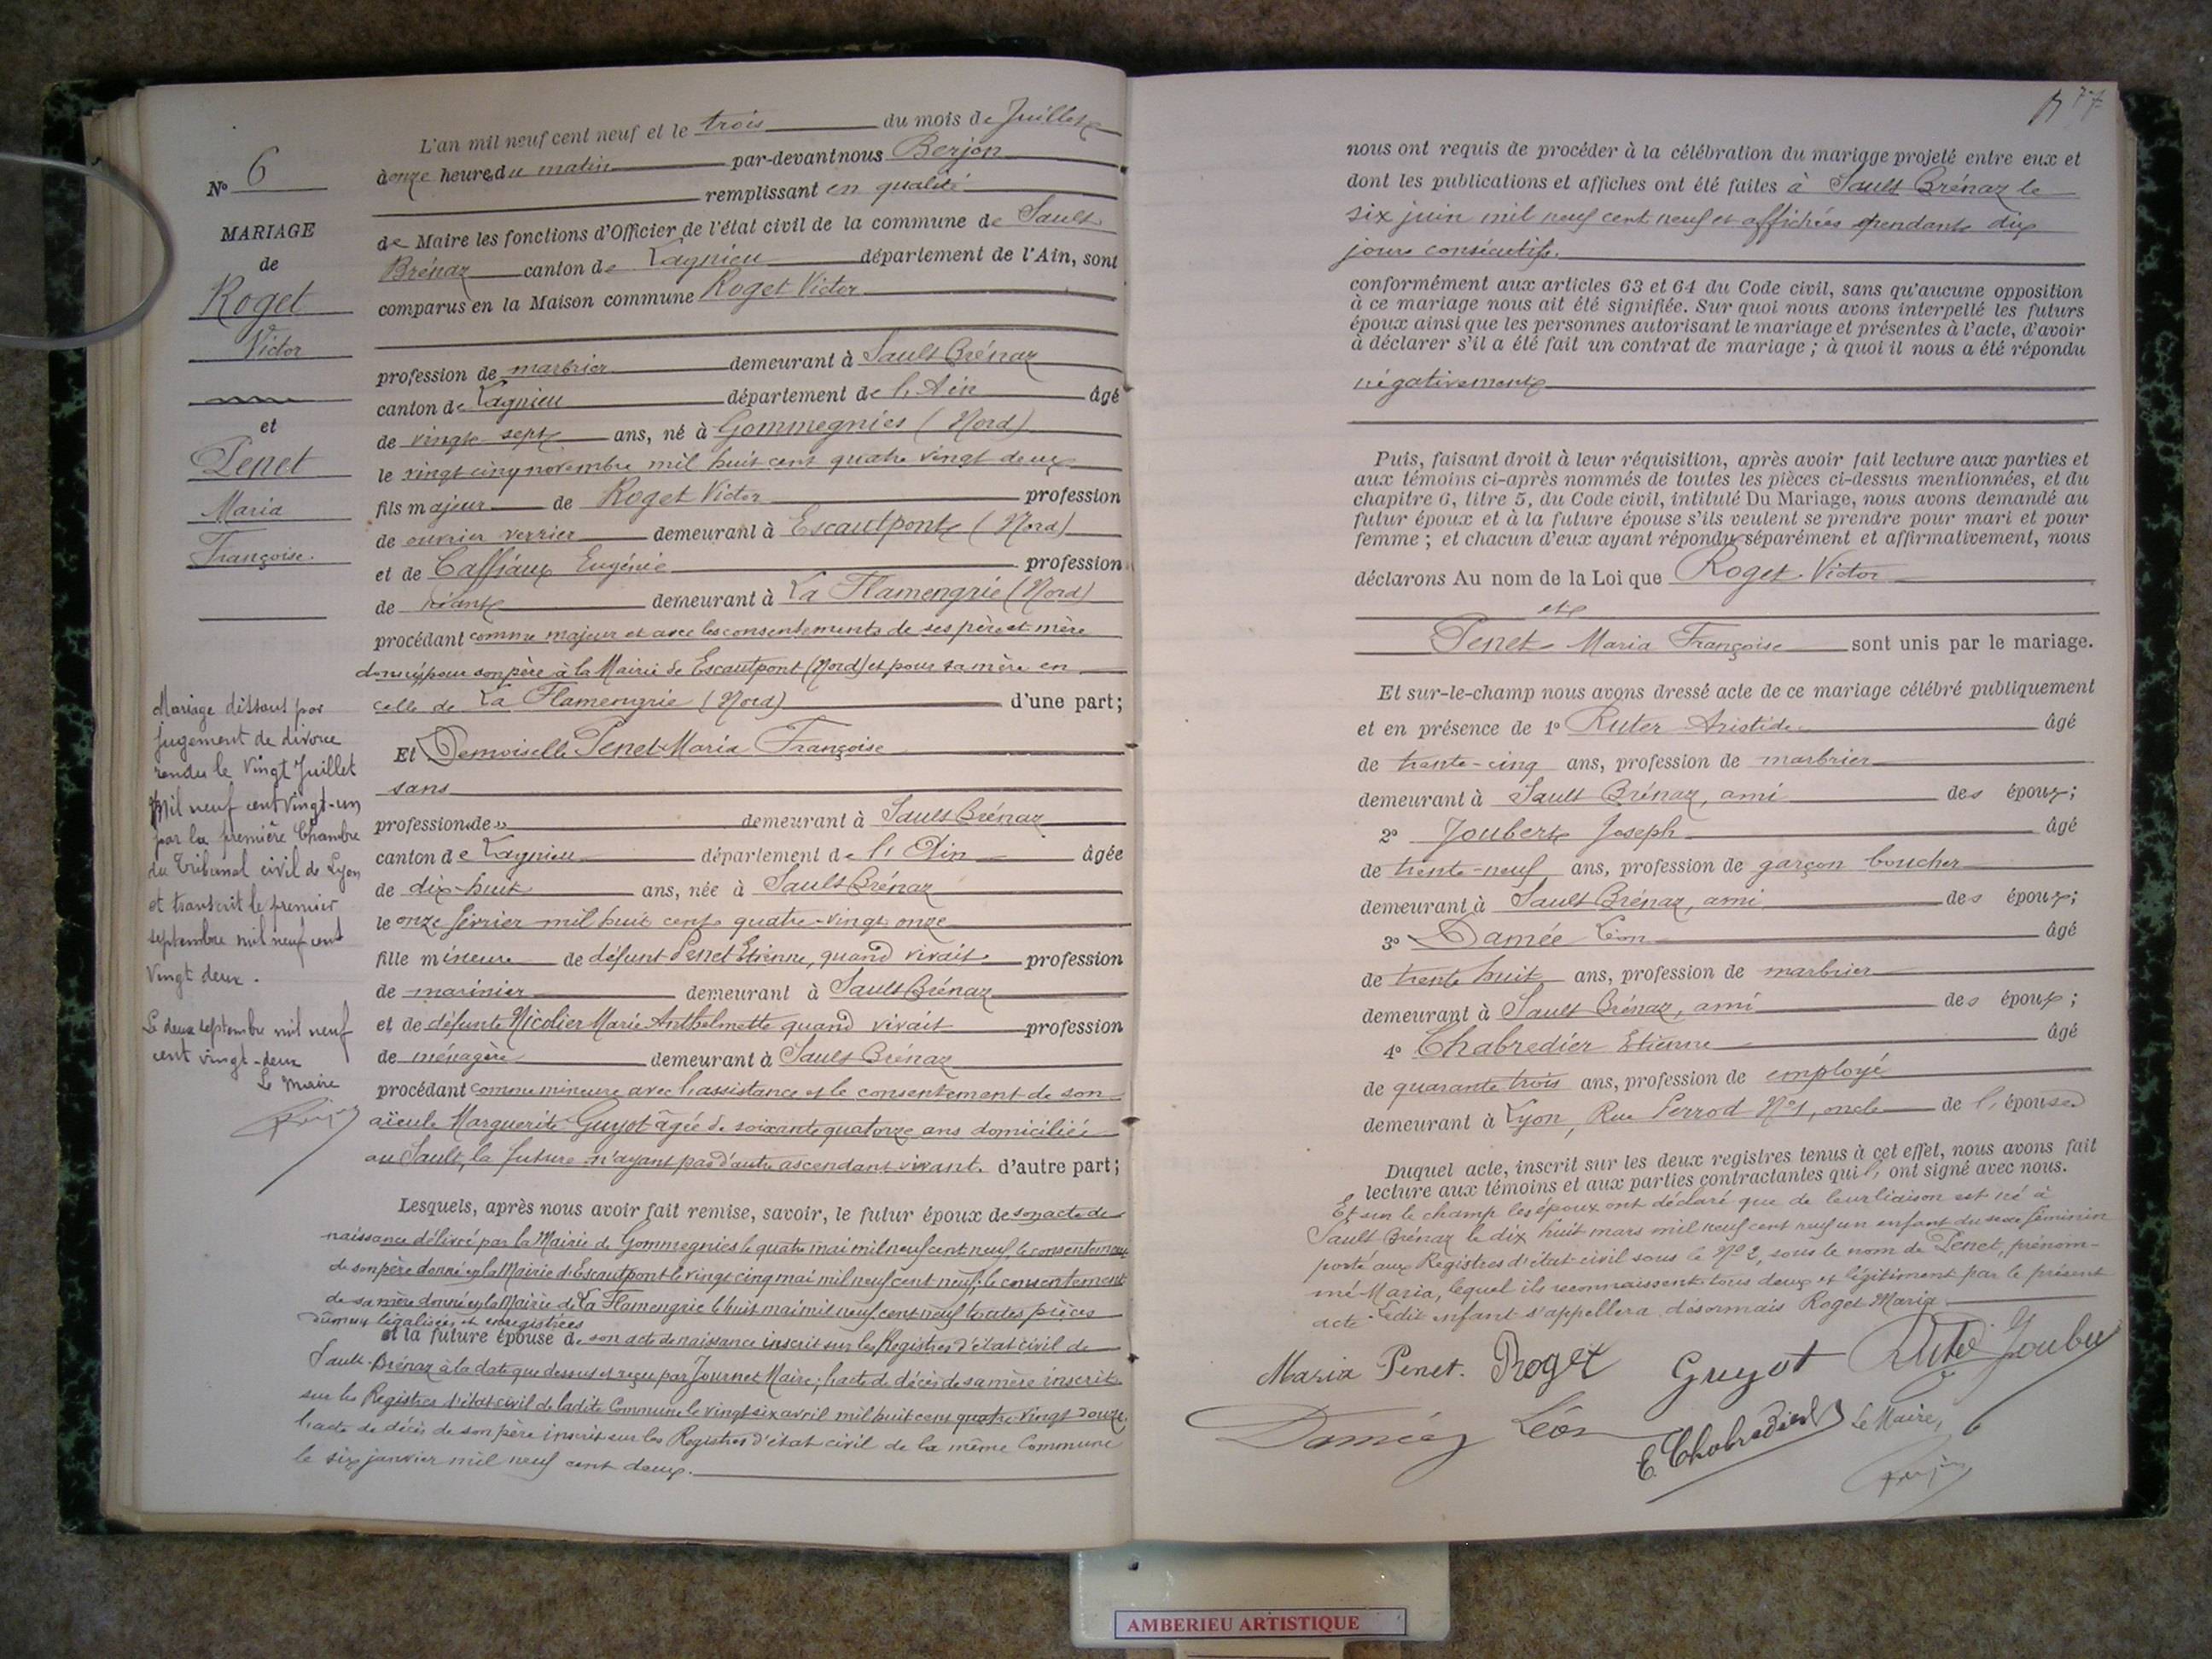 N° 6
MARIAGE
de
Roget
Victor
et
Penet
Maria
Françoise.
Mariage dissous par
jugement de divorce
rendu le Vingt Juillet
Mil neuf cent vingt-un
par la première Chambre
du Tribunal civil de Lyon
et transcrit le premier
septembre mil neuf cent
Vingt deux.
Le deux septembre mil neuf
cent vingt-deux
Le Maire
L'an mil neuf cent neuf et le trois du mois de Juillet
à onze heures du matin par-devant nous Berjon
remplissant en qualité
de Maire les fonctions d'Officier de l'état civil de la commune de Sault
Brénaz canton de Lagnieu département de l'Ain, sont
comparus en la Maison commune Roget Victor
profession de marbrier demeurant à Sault Brénaz
canton de Lagnieu département de l'Ain âgé
de vingt-sept ans, né à Gommegnies (Nord)
le vingt cinq novembre mil huit cent quatre vingt deux
fils majeur de Roget Victor profession
de ouvrier verrier demeurant à Escautpont (Nord)
et de Caffiaux Eugénie profession
de néant demeurant à La Flamengrie (Nord)
procédant comme majeur et avec les consentements de ses père et mère
donnés pour son père à la Mairie de Escautpont (Nord) et pour sa mère en
celle de La Flamengrie (Nord) d'une part;
Et Demoiselle Penet Maria Françoise
sans
profession de » demeurant à Sault Brénaz
canton de Lagnieu département de l'Ain âgée
de dix-huit ans, née à Sault Brénaz
le onze février mil huit cent quatre-vingt onze
fille mineure de défunt Penet Etienne, quand vivait profession
de marinier demeurant à Sault Brénaz
et de défunte Nicolier Marie Anthelmette quand vivait profession
de ménagère demeurant à Sault Brénaz
procédant comme mineure avec l'assistance et le consentement de son
aïeule Marguerite Guyot âgée de soixante quatorze ans domiciliée
au Sault, la future n'ayant pas d'autre ascendant vivant. d'autre part;
Lesquels, après nous avoir fait remise, savoir, le futur époux de son acte de
naissance délivré par la Mairie de Gommegnies le quatre mai mil neuf cent neuf, le consentement
de son père donné en la Mairie d'Escautpont le vingt cinq mai mil neuf cent neuf; le consentement
de sa mère donné en la Mairie de La Flamengrie le huit mai mil neuf cent neuf toutes pièces
dûment légalisées et enregistrées
et la future épouse de son acte de naissance inscrit sur les Registres d'état civil de
Sault-Brénaz à la date que dessus et reçu par Journet Maire; l'acte de décès de sa mère inscrit
sur les Registres d'état civil de ladite Commune le vingt six avril mil huit cent quatre-vingt douze.
l'acte de décès de son père inscrit sur les Registres d'état civil de la même Commune
le six janvier mil neuf cent deux.
77
nous ont requis de procéder à la célébration du mariage projeté entre eux et
dont les publications et affiches ont été faites à Sault Brénaz le
six juin mil neuf cent neuf et affichées pendant dix
jours consécutifs.
conformément aux articles 63 et 64 du Code civil, sans qu'aucune opposition
à ce mariage nous ait été signifiée. Sur quoi nous avons interpellé les futurs
époux ainsi que les personnes autorisant le mariage et présentes à l'acte, d'avoir
à déclarer s'il a été fait un contrat de mariage; à quoi il nous a été répondu
négativement
Puis, faisant droit à leur réquisition, après avoir fait lecture aux parties et
aux témoins ci-après nommés de toutes les pièces ci-dessus mentionnées, et du
chapitre 6, titre 5, du Code civil, intitulé Du Mariage, nous avons demandé au
futur époux et à la future épouse s'ils veulent se prendre pour mari et pour
femme; et chacun d'eux ayant répondu séparément et affirmativement, nous
déclarons Au nom de la Loi que Roget Victor
et
Penet Maria Françoise sont unis par le mariage.
Et sur-le-champ nous avons dressé acte de ce mariage célébré publiquement
et en présence de 1° Ruter Aristide âgé
de trente-cinq ans, profession de marbrier
demeurant à Sault Brénaz, ami des époux;
2° Joubert Joseph âgé
de trente-neuf ans, profession de garçon boucher
demeurant à Sault Brénaz, ami des époux;
3° Damée Léon âgé
de trente huit ans, profession de marbrier
demeurant à Sault Brénaz, ami des époux;
4° Chabredier Etienne âgé
de quarante trois ans, profession de employé
demeurant à Lyon, Rue Perrod N°1, oncle de l'épouse
Duquel acte, inscrit sur les deux registres tenus à cet effet, nous avons fait
lecture aux témoins et aux parties contractantes qui l' ont signé avec nous.
Et sur le champ les époux ont déclaré que de leur liaison est né à
Sault Brénaz le dix huit mars mil neuf cent neuf un enfant du sexe féminin
porté aux Registres d'état civil sous le N°2, sous le nom de Penet, prénom-
mé Maria, lequel ils reconnaissent tous deux et légitiment par le présent
acte. Ledit enfant s'appellera désormais Roget Maria
Maria Penet. Roget Guyot Joubert
Damée Léon E. Chabredier Le Maire,
AMBERIEU ARTISTIQUE